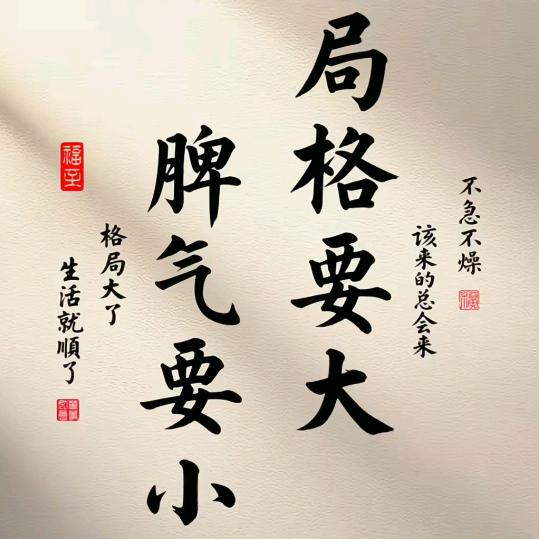 不急不燥
该来的总会来
局格要大
脾气要小
格局大了
生活就順了
福至